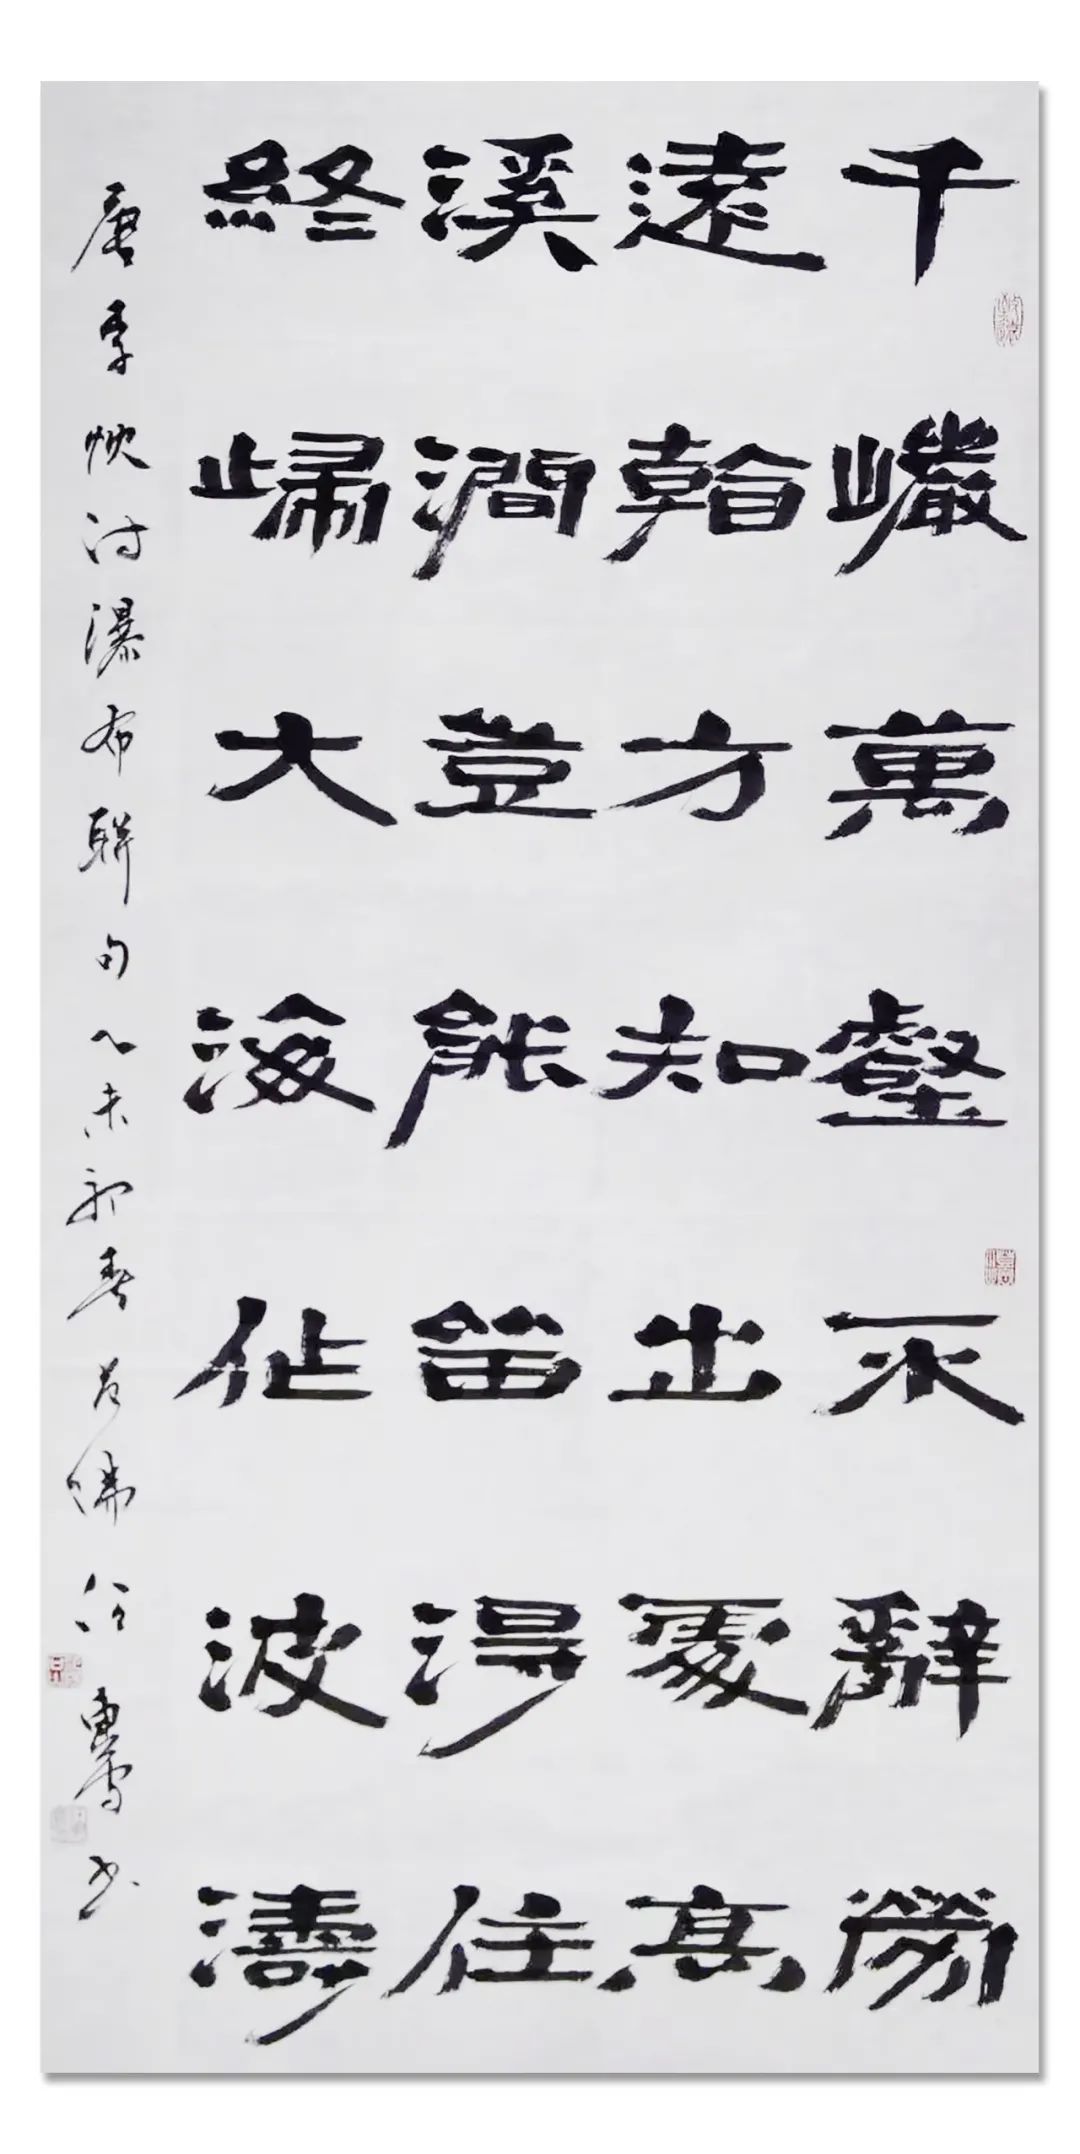 千巖萬壑不辭勞
遠看方知出處高
溪澗豈能留得住
終歸大海作波濤
唐李忱詩瀑布聯句乙未初春 佛 書